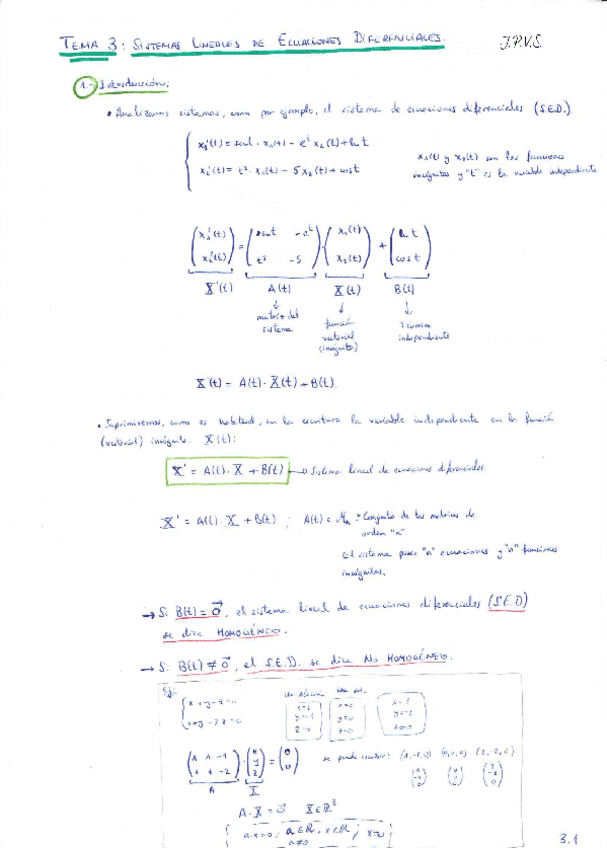 TEMA 3: SISTEMAS LINEALES DE ECUACIONES DIFERENCIALES.
J.P.V.S.
1.- Introducción:
• Analizamos sistemas, como por ejemplo, el sistema de ecuaciones diferenciales (S.E.D.).
x₁'(t) = sent · x₁(t) - eᵗ x₂(t) + ln t
x₂'(t) = t² · x₁(t) - 5x₂(t) + cos t
x₁(t) y x₂(t) son las funciones
incógnitas y "t" es la variable independiente
(x₁'(t)) = (sent -eᵗ) · (x₁(t)) + (ln t)
(x₂'(t)) (t² -5) (x₂(t)) (cos t)
X'(t) A(t) X(t) B(t)
↓ ↓ ↓
matriz del función Término
sistema vectorial independiente
(incógnita)
X'(t) = A(t) · X(t) + B(t).
• Suprimiremos, como es habitual, en la escritura la variable independiente en la función
(vectorial) incógnita X(t):
X' = A(t) · X + B(t) → Sistema lineal de ecuaciones diferenciales
X' = A(t) · X + B(t) ; A(t) ∈ Mₙ = Conjunto de las matrices de
orden "n"
El sistema posee "n" ecuaciones y "n" funciones
incógnitas.
→ Si B(t) = 0⃗, el sistema lineal de ecuaciones diferenciales (S.E.D)
se dice HOMOGÉNEO.
→ Si B(t) ≠ 0⃗, el S.E.D. se dice NO HOMOGÉNEO.
Ej:
x + y - z = 0
x + y - 2z = 0
x=0
y=0
z=0
(1 1 -1) · (x) = (0)
(1 1 -2) (y) (0)
(z)
A X
se puede escribir: (0,0,0)
A · X = 0⃗ X ∈ ℝ³
a·x = 0; a ∈ ℝ, x ∈ ℝ; x=0
a≠0
3.1